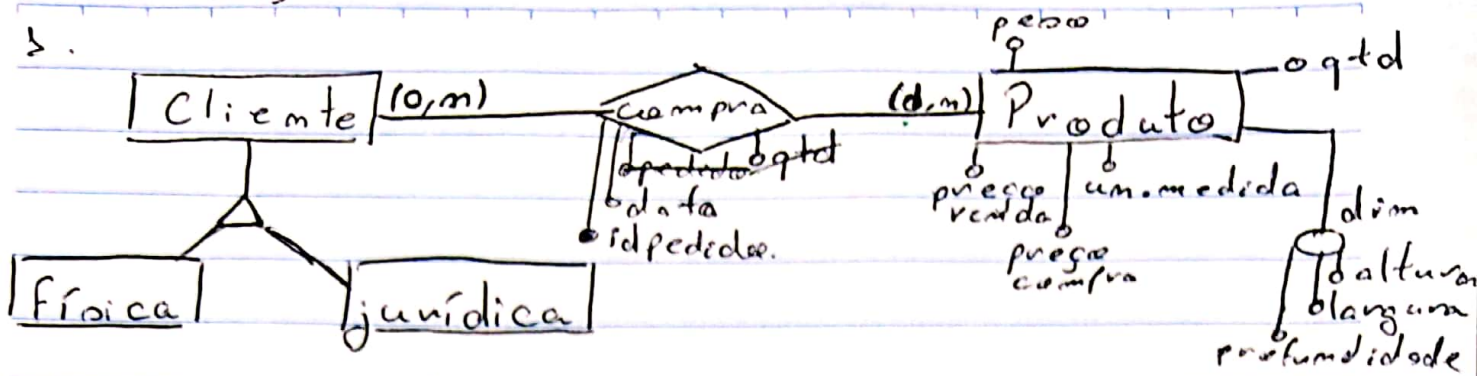 3.
peso
qtd
Cliente (0,n) compra (1,n) Produto
pedido qtd
data
idpedido.
preço venda
un.medida
preço compra
dim
altura
largura
profundidade
física jurídica